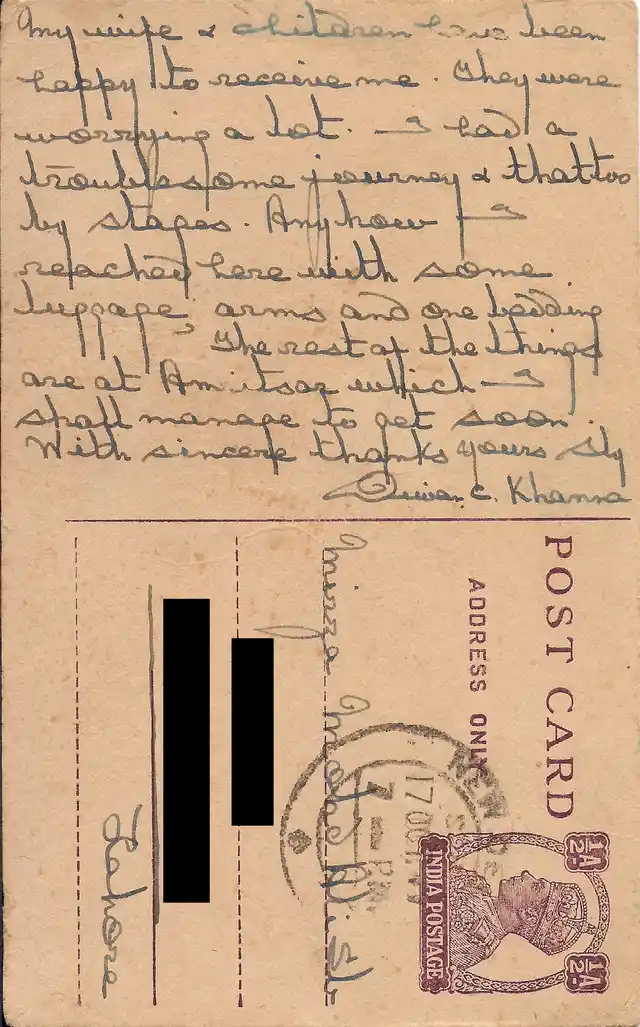 My wife & children have been
happy to receive me. They were
worrying a lot. I had a
troublesome journey & that too
by stages. Anyhow I
reached here with some
luggage, arms and one bedding
The rest of the things
are at Amritsar which I
shall manage to get soon.
With sincere thanks yours sly
Diwan C. Khanna
POST CARD
ADDRESS ONLY
Mirza
Lahore
NEW
17 OCT
7 - PM
½A ½A
INDIA POSTAGE